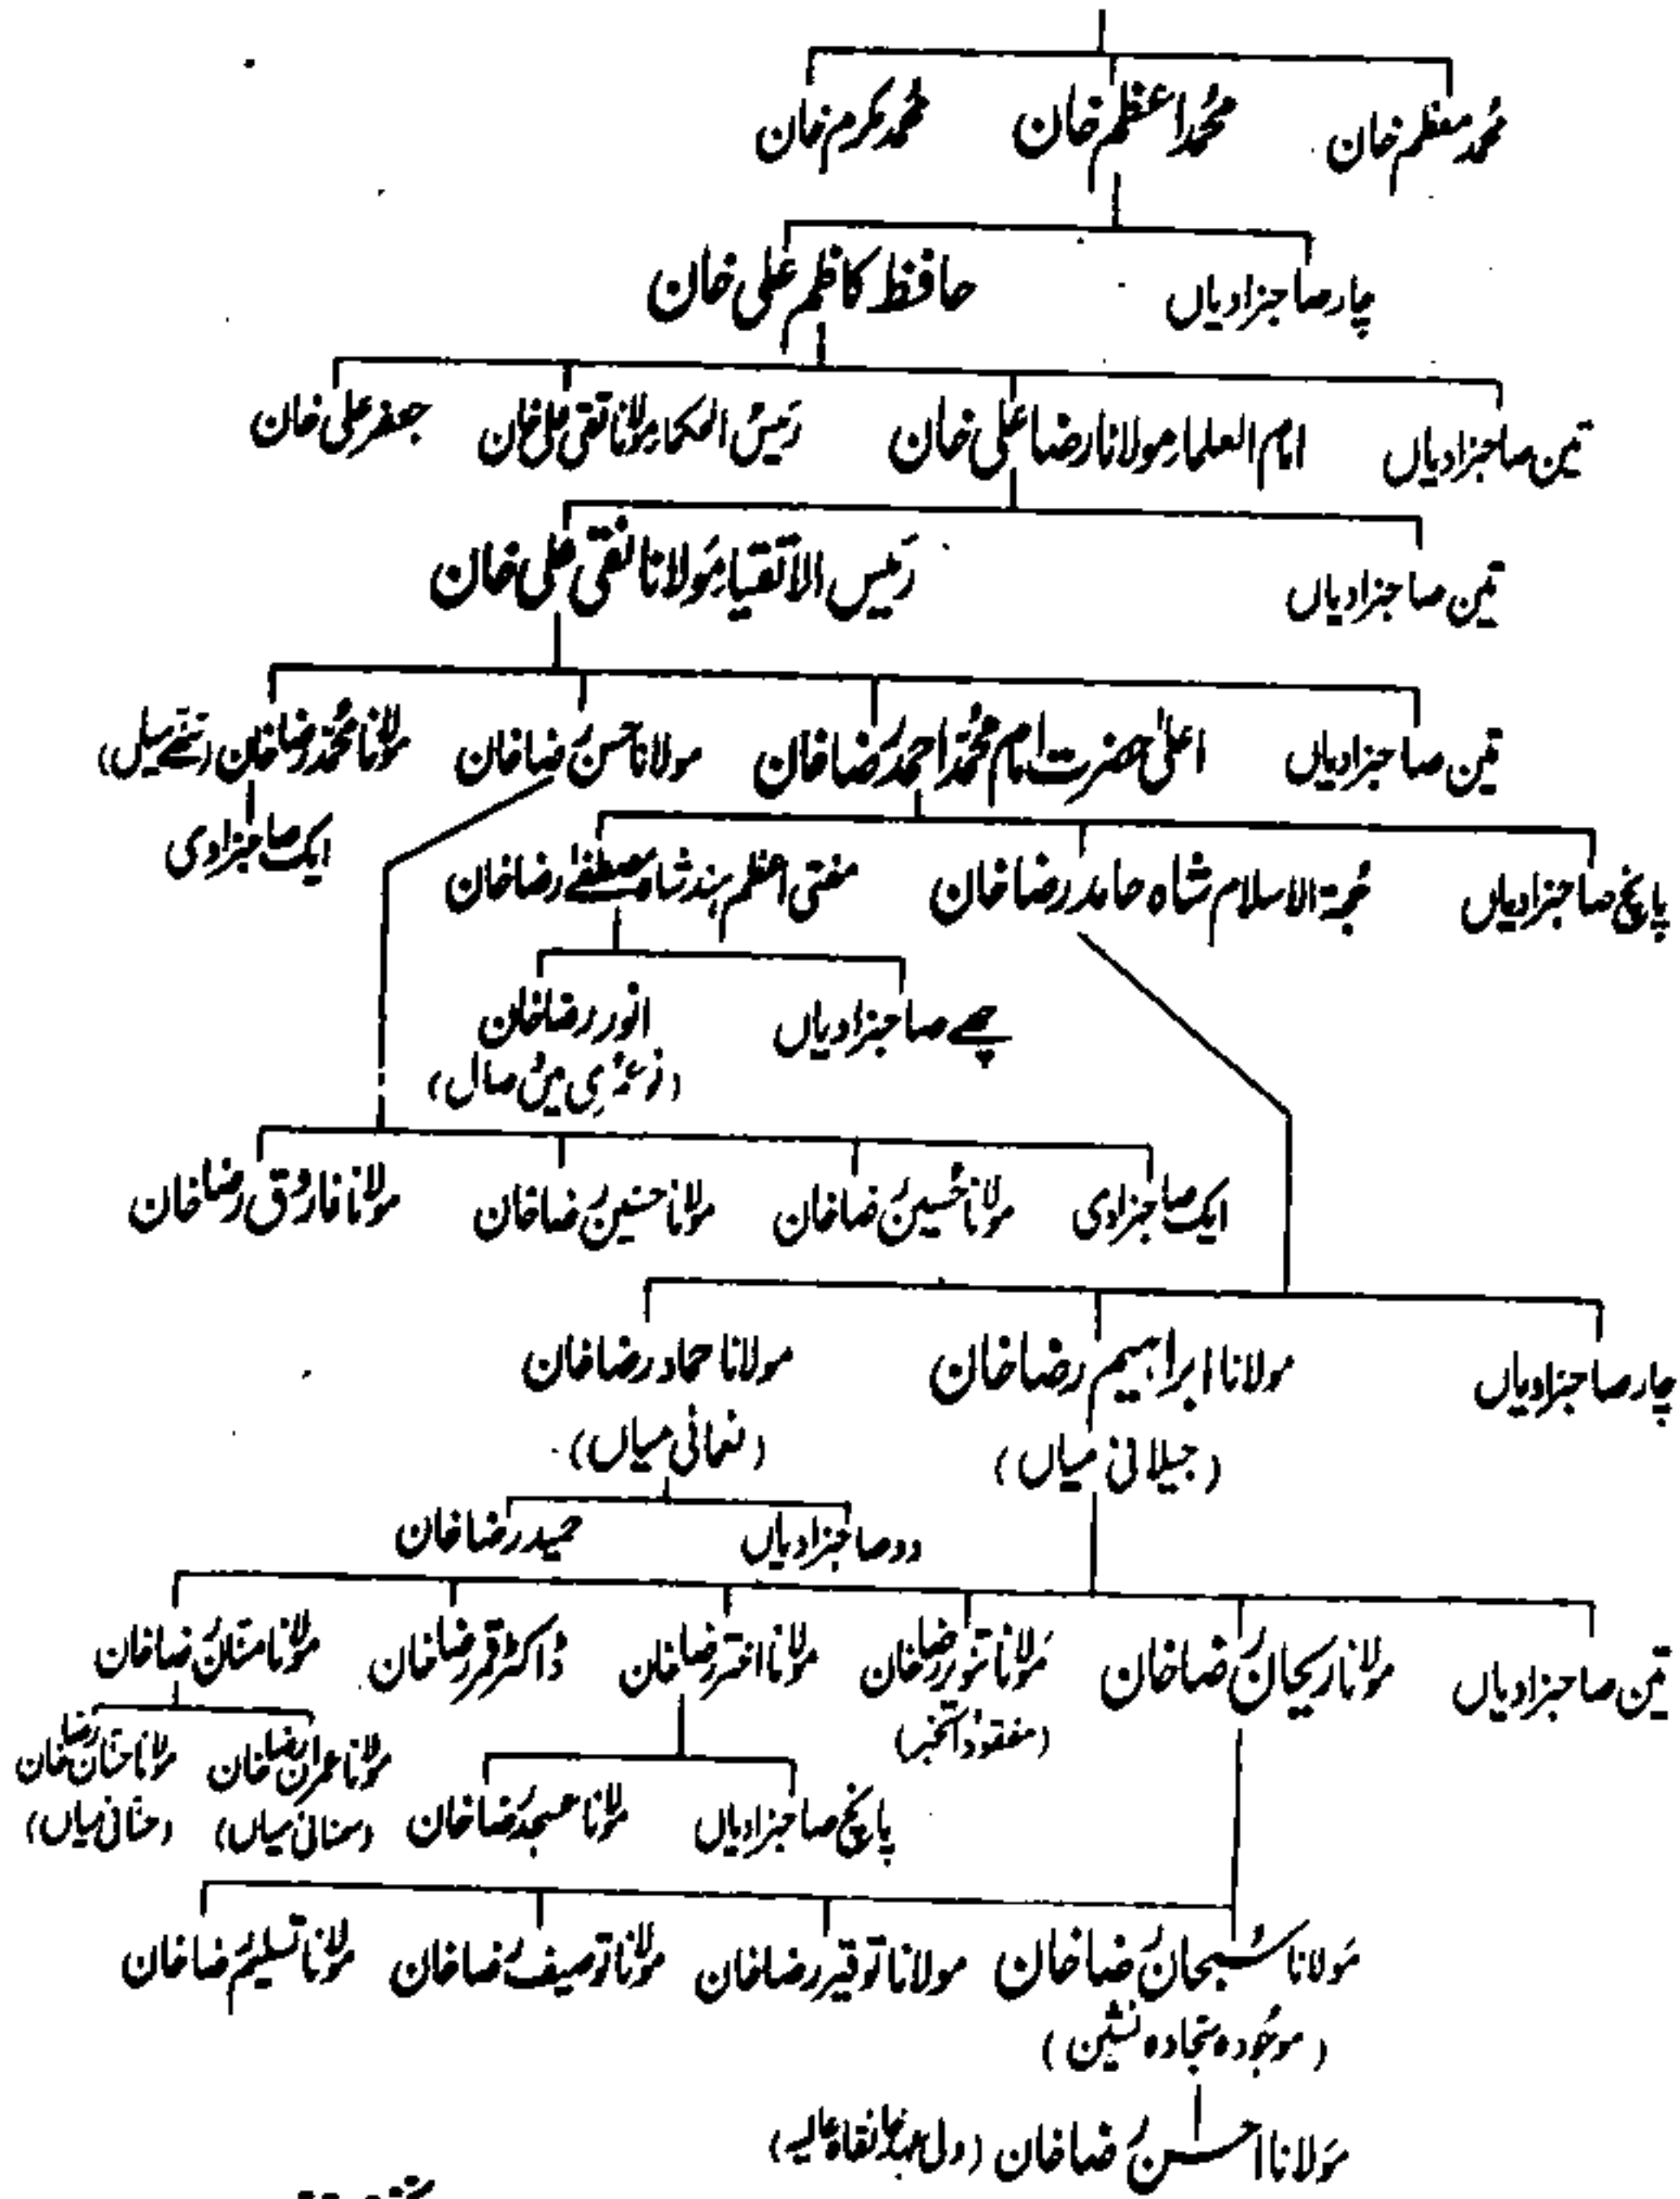 محمد معظم خان محمد اعظم خان محمد مکرم خان
چار صاحبزادیاں حافظ کاظم علی خان
تین صاحبزادیاں امام العلماء مولانا رضا علی خان رئیس الحکماء مولانا تقی علی خان جعفر علی خان
تین صاحبزادیاں رئیس الاتقیاء مولانا نقی علی خان
تین صاحبزادیاں اعلیٰ حضرت امام محمد احمد رضا خان مولانا حسن رضا خان مولانا محمد رضا خان (ننھے میاں)
ایک صاحبزادی
پانچ صاحبزادیاں حجۃ الاسلام شاہ حامد رضا خان مفتی اعظم ہند شاہ مصطفےٰ رضا خان
چھے صاحبزادیاں انور رضا خان
ایک صاحبزادی مولانا حسین رضا خان مولانا حسنین رضا خان مولانا فاروق رضا خان
چار صاحبزادیاں مولانا ابراہیم رضا خان مولانا حماد رضا خان
(جیلانی میاں) (نعمانی میاں)
دو صاحبزادیاں حمید رضا خان
تین صاحبزادیاں مولانا ریحان رضا خان مولانا تنویر رضا خان مولانا اختر رضا خان ڈاکٹر قمر رضا خان مولانا منان رضا خان
(مفقود الخبر) مولانا عمران رضا خان مولانا حنان رضا خان
پانچ صاحبزادیاں مولانا عسجد رضا خان (سمنانی میاں) (حنانی میاں)
مولانا سبحان رضا خان مولانا توقیر رضا خان مولانا توصیف رضا خان مولانا تسلیم رضا خان
(موجودہ سجادہ نشین)
مولانا احسن رضا خان (ولی عہد خانقاہ عالیہ)